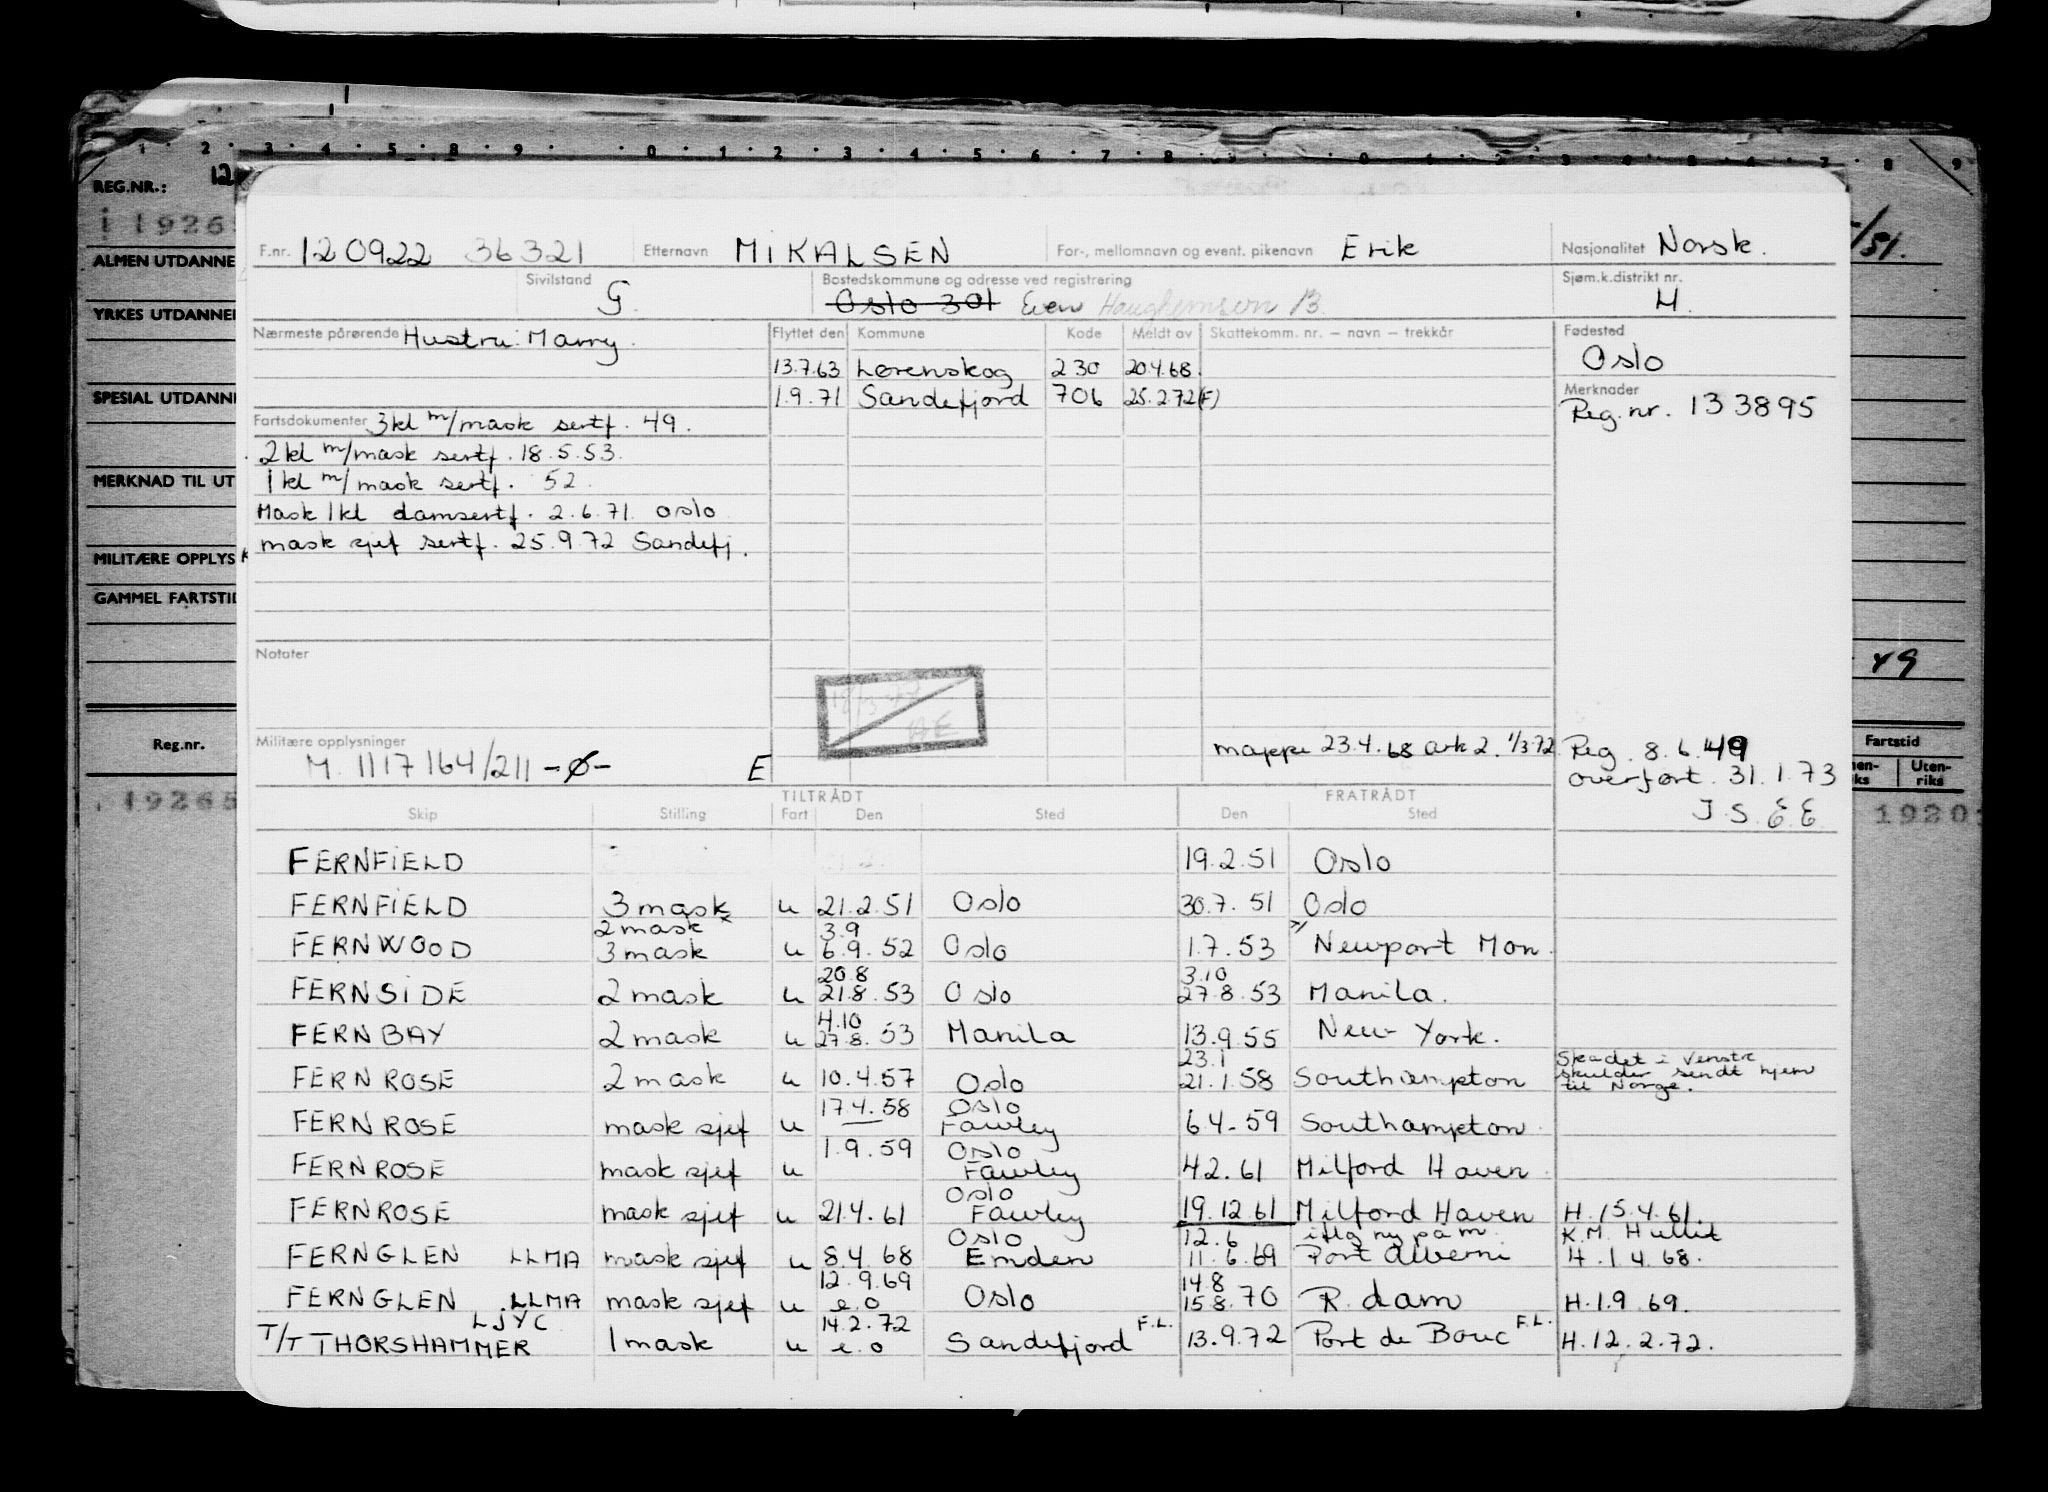 1 2 3 4 5 8 9 0 1 2 3 4 5 6 7 8 0 7 8 9
REG.NR.: 12
i 1926
/51.
ALMEN UTDANNE
YRKES UTDANNE
SPESIAL UTDANN
MERKNAD TIL UT
MILITÆRE OPPLYS
GAMMEL FARTSTID
Reg.nr.
19265
49
Fartstid
Uten-
riks
1920
F.nr. 120922 36321 Etternavn MIKALSEN For-, mellomnavn og event. pikenavn Erik Nasjonalitet Norsk.
Sivilstand G. Bostedskommune og adresse ved registrering Oslo 301 Even B Sjøm.k.distrikt nr. H.
Nærmeste pårørende Hustru: Marry. Flyttet den Kommune Kode Meldt av Skattekomm. nr. – navn – trekkår Fødested
Oslo
13.7.63 Lørenskog 230 20.4.68.
1.9.71 Sandefjord 706 25.2.72(F)
Merknader
Reg.nr. 133895
Fartsdokumenter 3kl m/mask sertf. 49.
2 kl m/mask sertf. 18.5.53.
1 kl m/mask sertf. 52.
Mask 1kl damsertf. 2.6.71. Oslo
mask sjef sertf. 25.9.72 Sandefj.
Notater
Militære opplysninger
M. 1117164/211 -Ø- E
mappe 23.4.68 ark 2. 1/3.72.
Reg. 8.6.49
overført. 31.1.73
J.S.E.E.
TILTRÅDT FRATRÅDT
Skip Stilling Fart Den Sted Den Sted
FERNFIELD 19.2.51 Oslo
FERNFIELD 3 mask u 21.2.51 Oslo 30.7.51 Oslo
2 mask x 3.9
FERNWOOD 3 mask u 6.9.52 Oslo 1.7.53 Newport Mon.
20.8 3.10
FERNSIDE 2 mask u 21.8.53 Oslo 27.8.53 Manila.
4.10
FERNBAY 2 mask u 27.8.53 Manila 13.9.55 New York.
23.1 Skadet i venstre
FERNROSE 2 mask u 10.4.57 Oslo 21.1.58 Southampton skulder sendt hjem
til Norge.
17.4.58 Oslo
FERNROSE mask sjef u Fawley 6.4.59 Southampton
1.9.59 Oslo
FERNROSE mask sjef u Fawley 4.2.61 Milford Haven
Oslo
FERNROSE mask sjef u 21.4.61 Fawley 19.12.61 Milford Haven H.15.4.61.
Oslo 12.6 iflg ny påm K.M.
FERNGLEN LLMA mask sjef u 8.4.68 Emden 11.6.69 Port Alberni H.1.4.68.
12.9.69 14.8
FERNGLEN LLMA mask sjef u e.o Oslo 15.8.70 R.dam H.1.9.69.
LJYC 14.2.72
T/T THORSHAMMER 1 mask u e.o Sandefjord F.L. 13.9.72 Port de Bouc F.L. H.12.2.72.